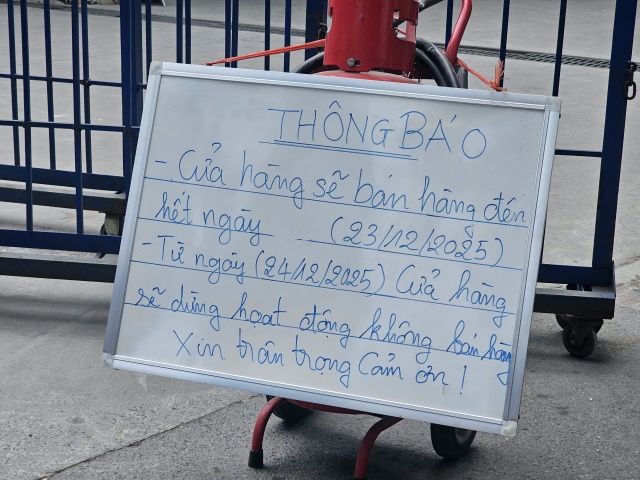 THÔNG BÁO
- Cửa hàng sẽ bán hàng đến
hết ngày (23/12/2025)
- Từ ngày (24/12/2025) Cửa hàng
sẽ dừng hoạt động không bán hàng
Xin trân trọng cảm ơn!